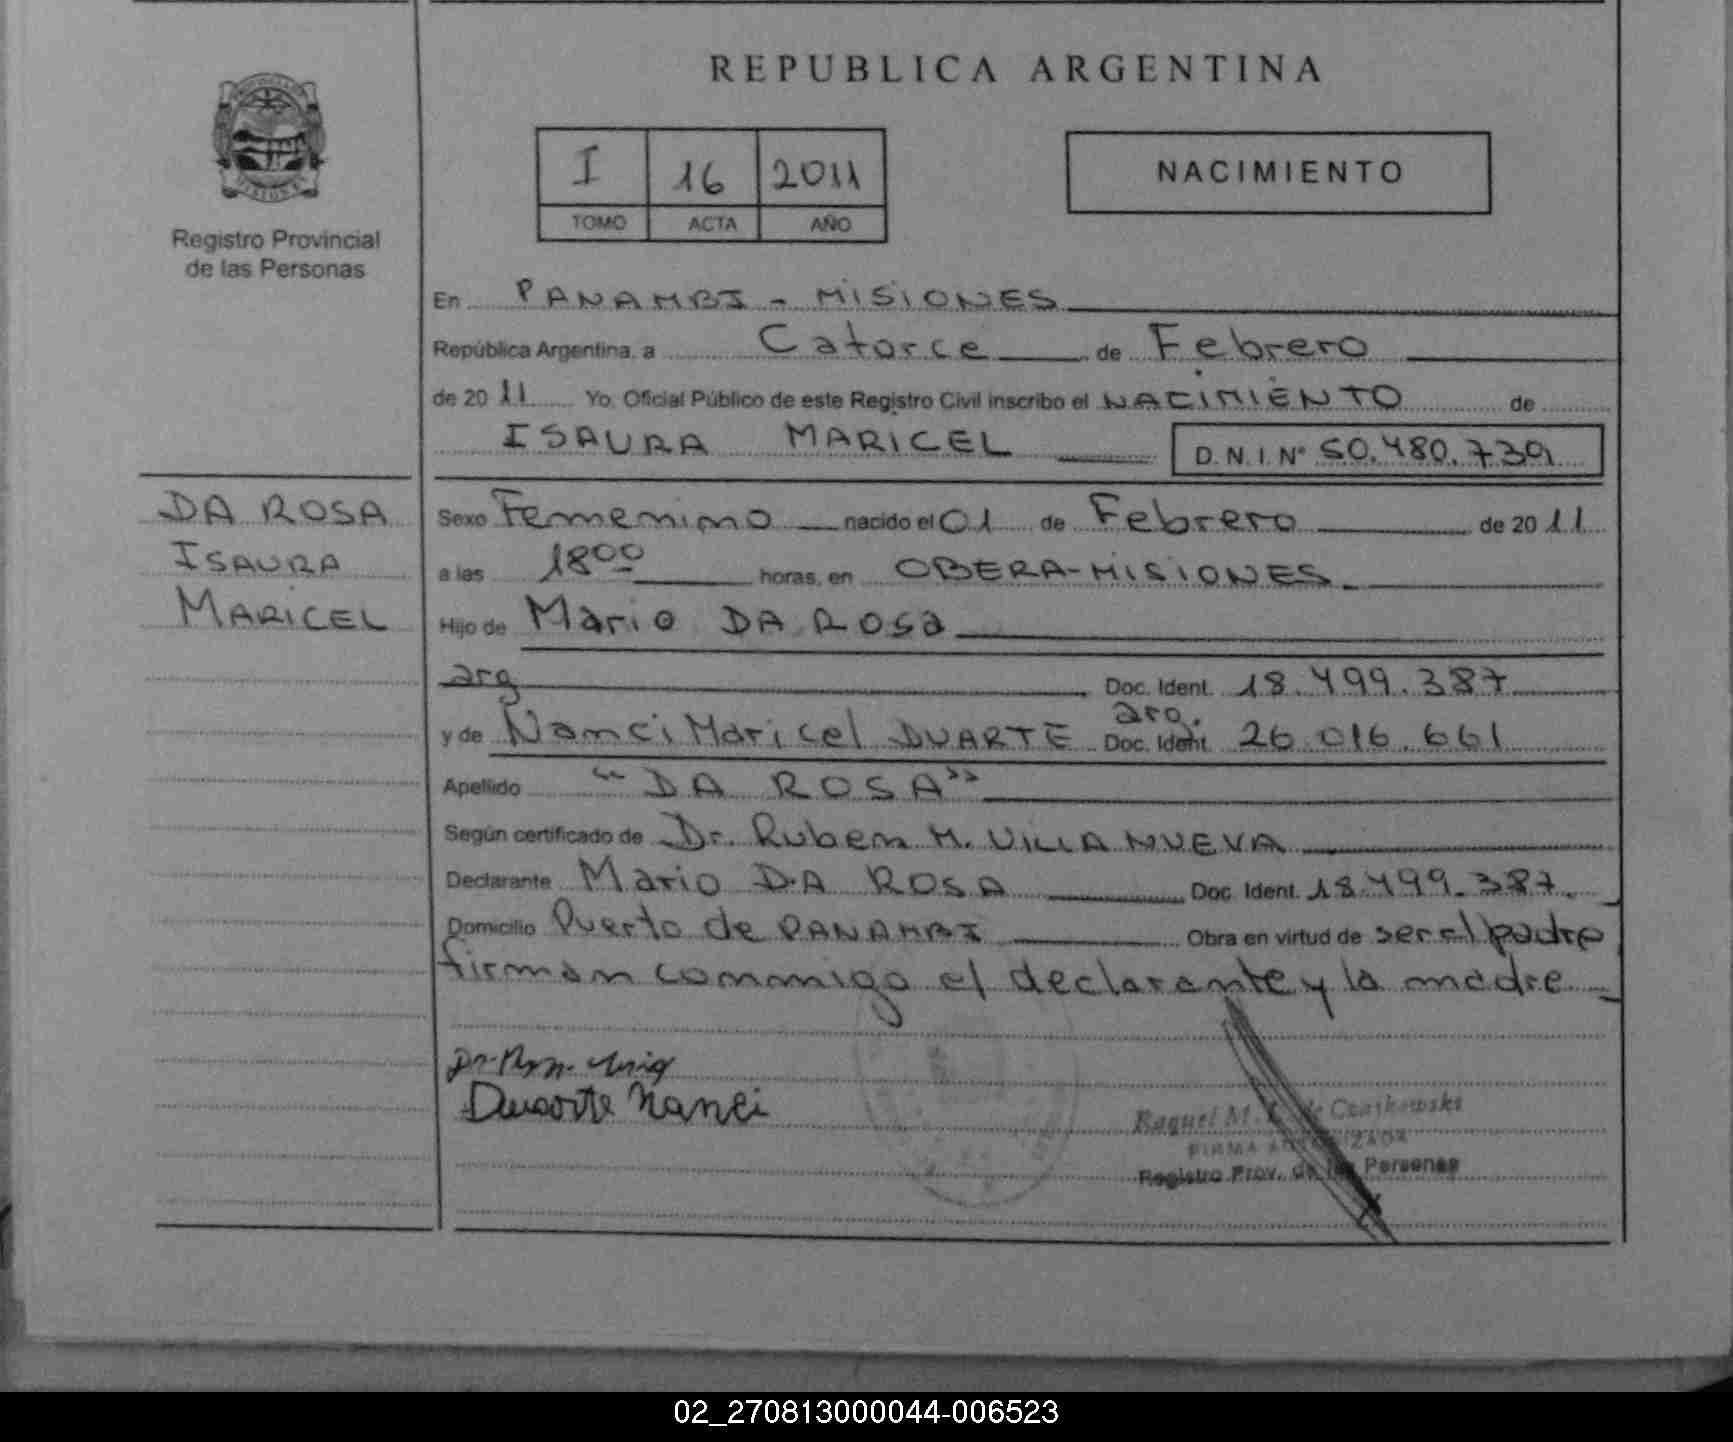 REPUBLICA ARGENTINA
I 16 2011
TOMO ACTA AÑO
NACIMIENTO
Registro Provincial
de las Personas
En PANAMBI - MISIONES
República Argentina, a Catorce de Febrero
de 20 11 Yo, Oficial Público de este Registro Civil inscribo el NACIMIENTO de
ISAURA MARICEL D.N.I. N° 50.480.739
DA ROSA
ISAURA
MARICEL
Sexo Femenino nacido el 01 de Febrero de 20 11
a las 18 00 horas, en OBERA-MISIONES
Hijo de Mario DA ROSA
arg Doc. Ident. 18.499.387
y de Nanci Maricel DUARTE arg. Doc. Ident. 26.016.661
Apellido "DA ROSA"
Según certificado de Dr. Ruben M. VILLANUEVA
Declarante Mario DA ROSA Doc. Ident. 18.499.387.
Domicilio Puerto de PANAMBI Obra en virtud de ser el padre
firman conmigo el declarante y la madre
Duarte Nanci
Raquel M. de Czajkowski
FIRMA AUTORIZADA
Registro Prov. de las Personas
02_270813000044-006523